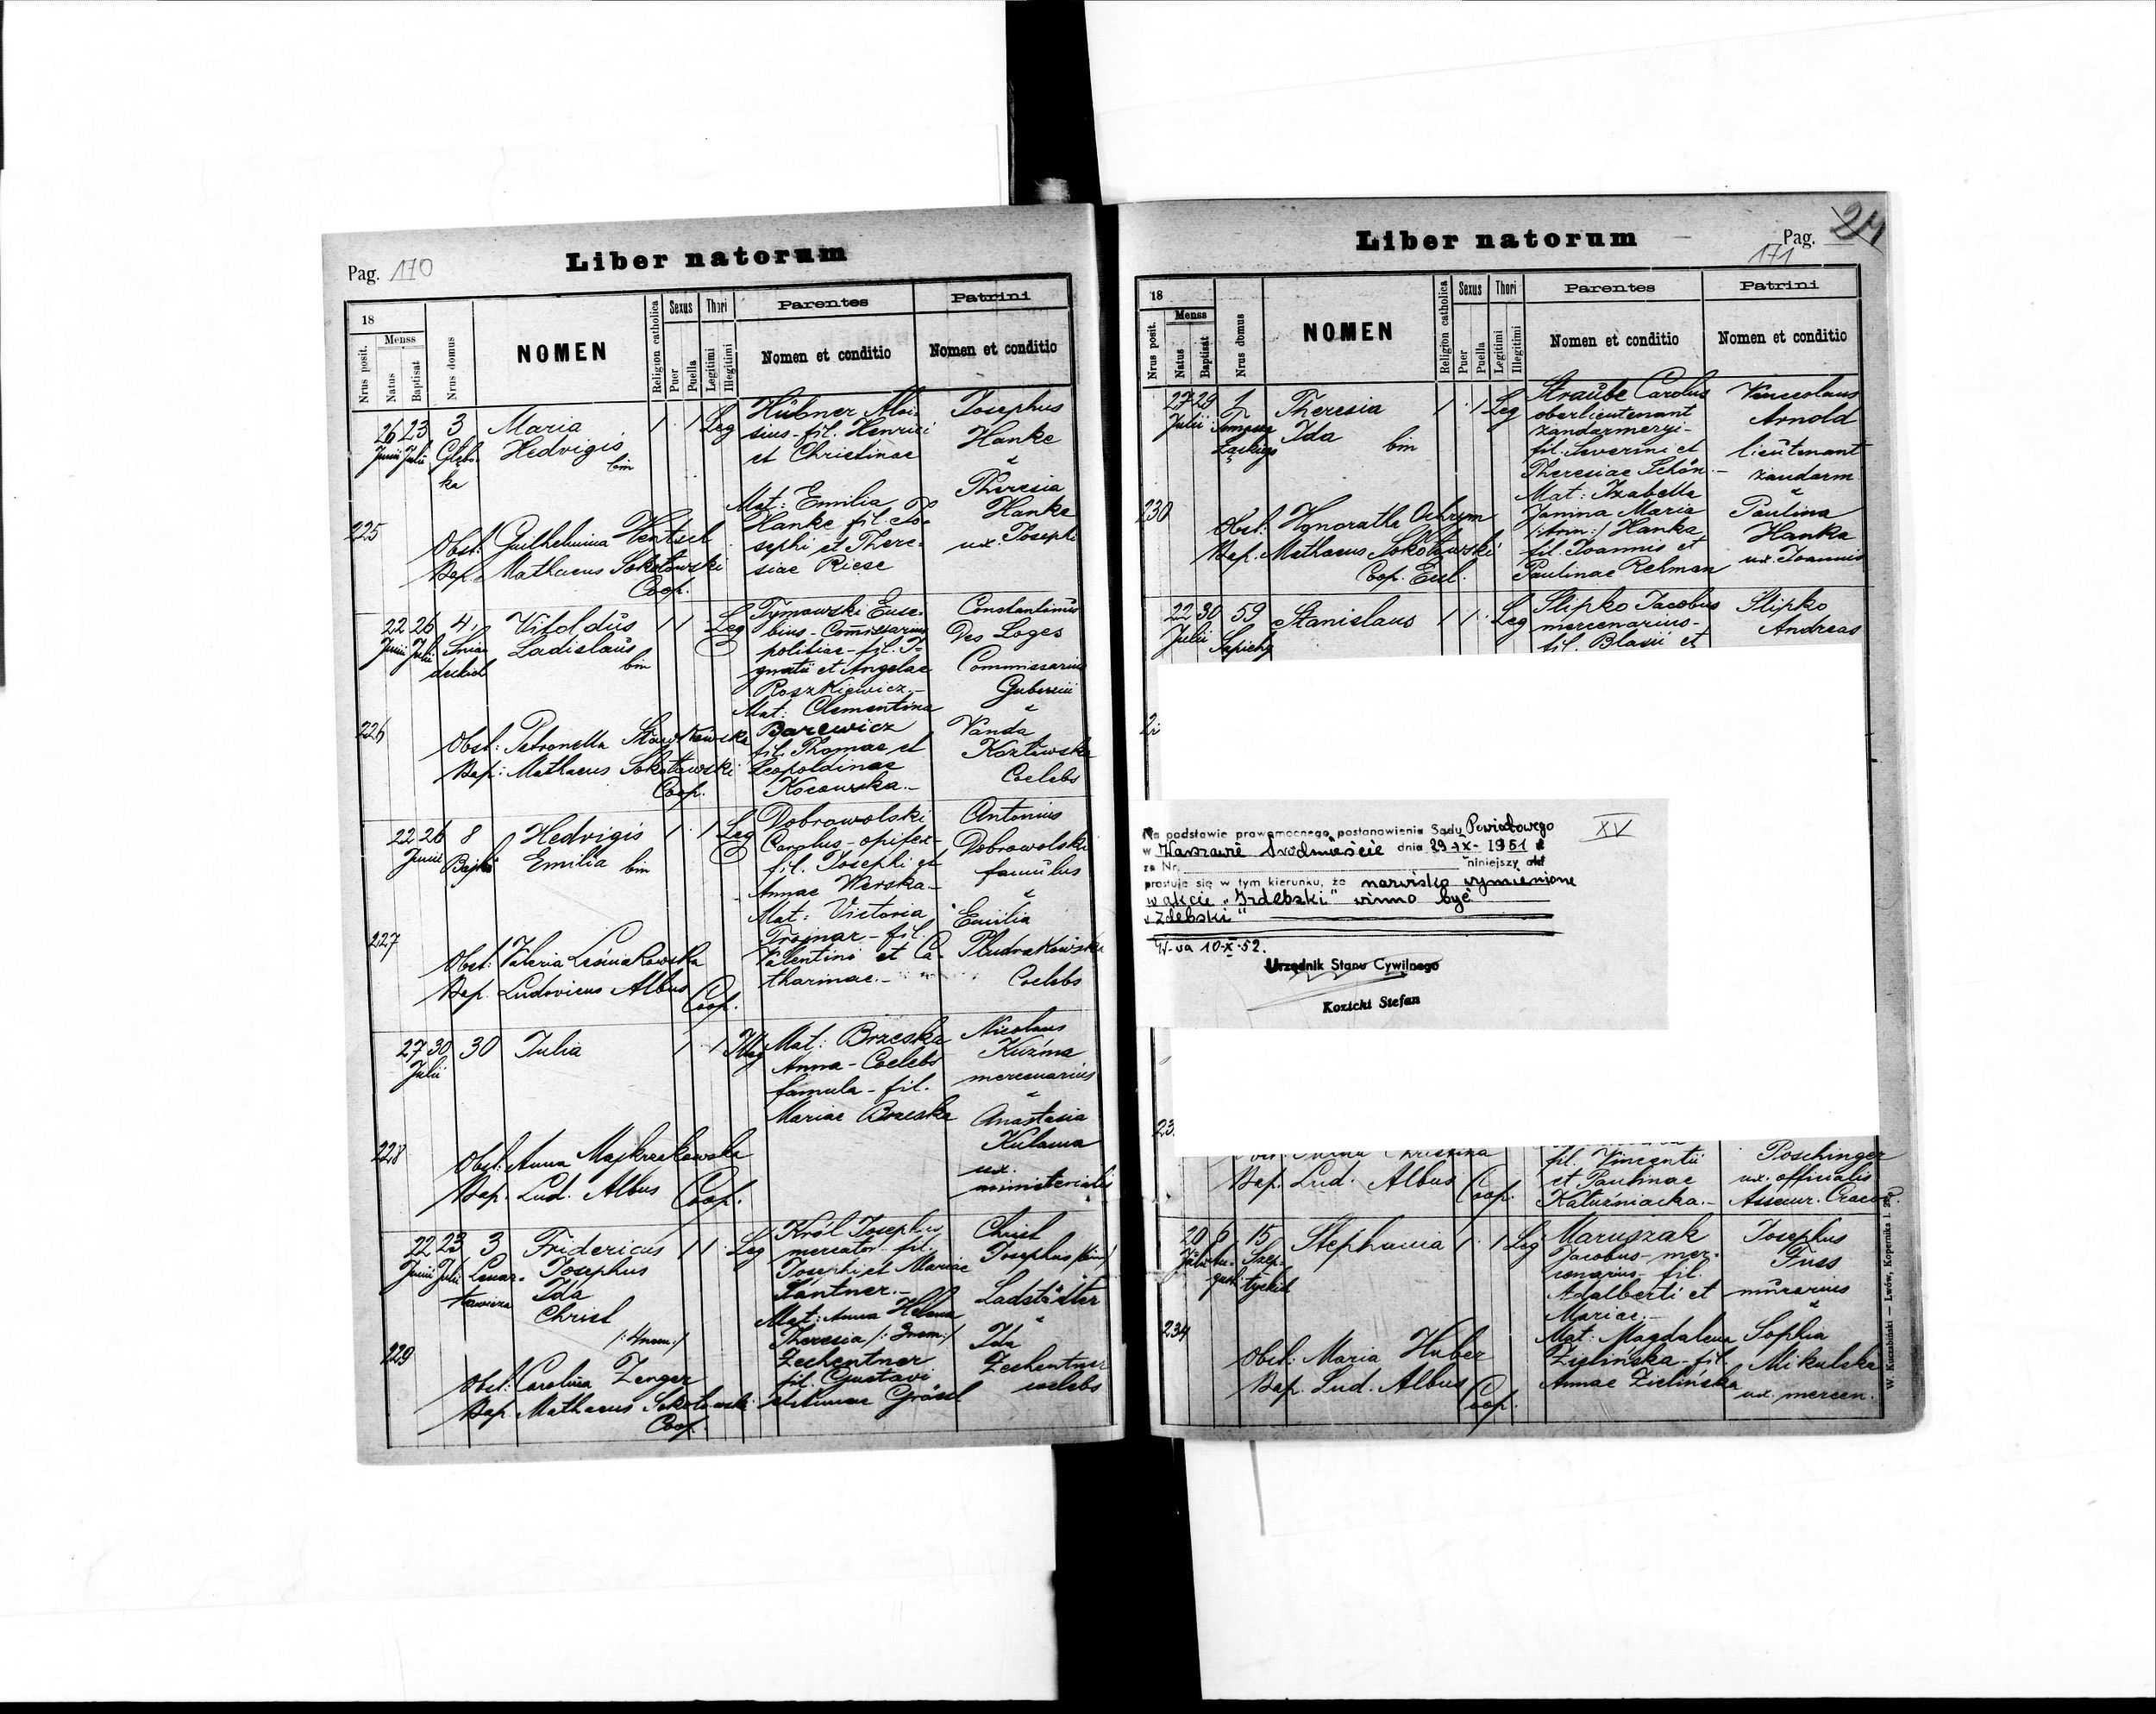 Pag. 170
Liber natorum
18
Nrus posit.
Menss
Natus
Baptisat
Nrus domus
NOMEN
Religion catholica
Sexus
Puer
Puella
Thori
Legitimi
Illegitimi
Parentes
Nomen et conditio
Patrini
Nomen et conditio
225
26 23
Junii Julii
3
Głębo-
ka
Maria
Hedvigis
bin
1 1 Leg
Hübner Aloi-
sius - fil. Henrici
et Christinae
Mat: Emilia
Hanke fil. Jo-
sephi et There-
siae Riese
Josephus
Hanke
Theresia
Hanke
ux. Josephi
Obst: Guilhelmina Hentsch
Bap. Mathaeus Sokołowski
Coop.
226
22 26
Junii Julii
4
Śnia-
deckich
Vitoldus
Ladislaus
bin
1 1 Leg
Tymowski Euse-
bius - Commissarius
politiae - fil. I-
gnatii et Angelae
Roszkiewicz.-
Mat: Clementina
Barewicz
fil. Thomae et
Leopoldinae
Constantinus
Des Loges
Commissarius
Gubernii
Vanda
Kozłowska
Coelebs
Obst: Petronella
Bap: Mathaeus Sokołowski
Coop.
227
22 26
Junii
8
Bajki
Hedvigis
Emilia bin
1 1 Leg
Dobrowolski
Carolus - opifex -
fil. Josephi et
Annae Werska -
Mat: Victoria
Trojnar - fil.
Valentini et Ca-
tharinae.-
Antonius
Dobrowolski
famulus
Emilia
Coelebs
Obst: Valeria Leśniakowska
Bap. Ludovicus Albus
Coop.
228
27 30
Julii
30
Julia
1 1 Illeg
Mat: Brzeska
Anna - Coelebs
famula - fil.
Mariae Brzeska
Nicolaus
Kuźma
mercenarius
Anastasia
Kulawa
ux.
ministerialis
Obst: Anna Majkrzakowska
Bap. Lud. Albus Coop.
229
22 23
Junii Julii
3
Lenar-
towicza
Fridericus
Josephus
Ida
Christ
/:4nom:/
1 1 Leg
Król Josephus
mercator - fil.
Josephi et Mariae
Lantner.-
Mat: Anna Helena
Theresia /:3nom:/
Zechentner
fil. Gustavi
Christ
Josephus /bin/
Ladstädter
Ida
Zechentner
coelebs
Obst: Carolina Zenger
Bap. Mathaeus Sokołowski
Coop.
Liber natorum
Pag. 24
171
18
Nrus posit.
Menss
Natus
Baptisat
Nrus domus
NOMEN
Religion catholica
Sexus
Puer
Puella
Thori
Legitimi
Illegitimi
Parentes
Nomen et conditio
Patrini
Nomen et conditio
230
27 29
Julii
Theresia
Ida bin
1 1 Leg
Straube Carolus
oberlieutenant
żandarmeryi -
fil. Severini et
Theresiae Schön -
Mat: Izabella
Janina Maria
Hanka
fil. Joannis et
Paulinae Rehman
Venceslaus
Arnold
lieutenant
żandarm
Paulina
Hanka
ux. Joannis
Obst: Honoratha Ochrym
Bap. Mathaeus Sokołowski
Coop. Eccl.
22 30
Julii
59
Sapiehy
Stanislaus
1 1 Leg
Slipko Jacobus
mercenarius -
fil. Blasii et
Slipko
Andreas
Na podstawie prawomocnego postanowienia Sądu Powiatowego
w Warszawie Śródmieście dnia 29-IX- 1951 r
za Nr. niniejszy akt
prostuje się w tym kierunku, że nazwisko wymienione
w akcie „Izdebski" winno być
„Zdebski"
W-wa 10-X-52.
Urzędnik Stanu Cywilnego
Kozicki Stefan
XV
23
Bap. Lud. Albus Coop.
fil. Vincentii
et Paulinae
Kałuźniacka.-
Poschinger
ux. officialis
Assecur. Cracov.
234
20 6
Julii Au-
gusti
15
Szep-
tyckich
Stephania
1 1 Leg
Maruszak
Jacobus - mer-
cenarius - fil.
Adalberti et
Mariae.-
Mat: Magdalena
Zielińska - fil.
Annae Zielińska
Josephus
Fuss
murarius
Sophia
Mikulska
ux. mercen.
Obst: Maria Huber
Bap. Lud. Albus
Coop.
W. Kuczabiński — Lwów, Kopernika l.